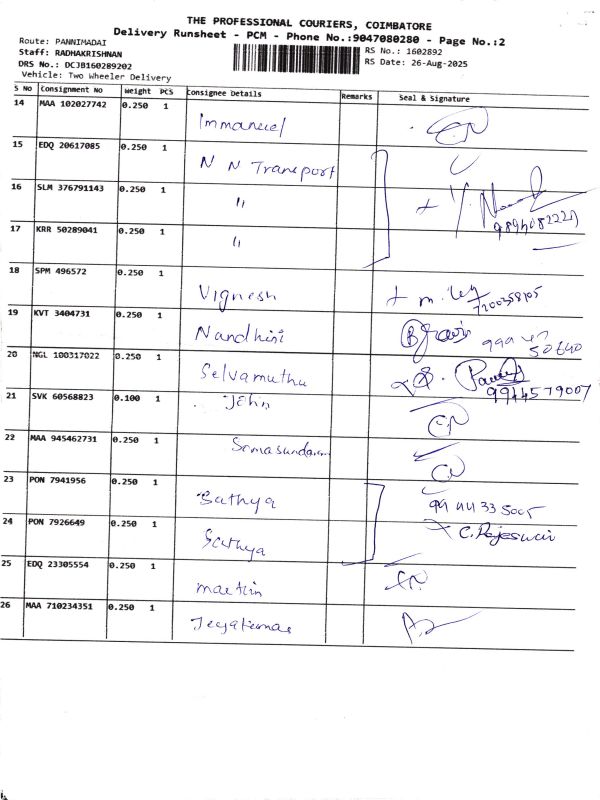 THE PROFESSIONAL COURIERS, COIMBATORE
Delivery Runsheet - PCM - Phone No.:9047080280 - Page No.:2
Route: PANNIMADAI
RS No.: 1602892
Staff: RADHAKRISHNAN
RS Date: 26-Aug-2025
DRS No.: DCJB160289202
Vehicle: Two Wheeler Delivery
S No Consignment No Weight PCS Consignee Details Remarks Seal & Signature
14 MAA 102027742 0.250 1 Immanuel
15 EDQ 20617085 0.250 1 N N Transport
16 SLM 376791143 0.250 1 "
9894082221
17 KRR 50289041 0.250 1 "
18 SPM 496572 0.250 1 Vignesh
7200358105
19 KVT 3404731 0.250 1 Nandhini
50640
20 NGL 100317022 0.250 1 Selvamuthu
9944579007
21 SVK 60568823 0.100 1 John
22 MAA 945462731 0.250 1 Somasundaram
23 PON 7941956 0.250 1 Sathya
99 44 33 5005
24 PON 7926649 0.250 1 Sathya C. Rajeswari
25 EDQ 23305554 0.250 1 martin
26 MAA 710234351 0.250 1 Jeyakumar